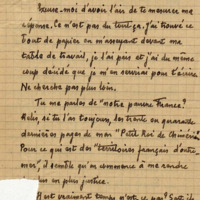 Excuse-moi d'avoir l'air de te mesurer ma
réponse. Ce n'est pas du tout ça, j'ai trouvé ce
bout de papier en m'asseyant devant ma
table de travail, je l'ai pris et j'ai du même
coup décidé que je m'en servirai pour t'écrire.
Ne cherche pas plus loin.
Tu me parles de "notre pauvre France"?
Hélas, as tu l'as toujours, des trente ou quarante
dernières pages de mon "Petit Roi de Chimérie".
Pour ce qui est des "territoires français d'outre
mer", il semble qu'on commence à me rendre
un peu plus justice.
Il est vraiment temps n'est ce pas?